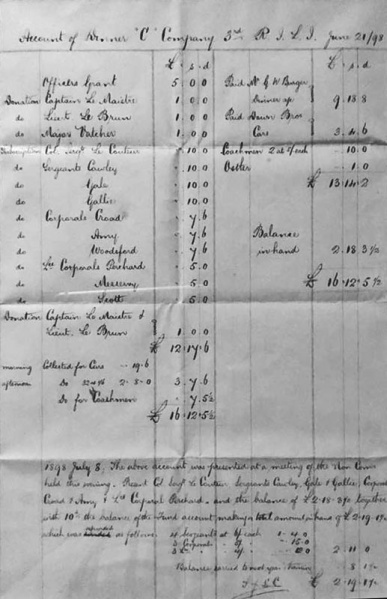 Account of Dinner "C" Company 3rd R J L I June 21/98
£ s d
£ s d
Officers Grant 5 0 0
Paid N & W Burger
Donation Captain Le Maistre 1 0 0
Dinner up 9 18 8
do Lieut Le Brun 1 0 0
Paid Down Bros
do Major Vatcher 1 0 0
Cars 3 4 6
Col Sergt Le Cornu 10 0
Coachmen 2 at 5/ each 10 0
do Sergeants Cawley 10 0
Ostler 1 0
do Gale 10 0
£ 13 14 2
do Gallie 10 0
do Corporals Croad 7 6
do Amy 7 6
Balance
do Woodford 7 6
in hand 2 18 3½
do Lce Corporals Perchard 5 0
do 5 0
£ 16 12 5½
do Scott 5 0
Donation Captain Le Maistre &
Lieut. Le Brun 1 0 0
£ 12 17 6
morning Collected for Cars 19 6
afternoon Do 2 8 0 3 7 6
Do for Coachmen 7 5½
£ 16 12 5½
1898 July 8, The above account was presented at a meeting of the Non Coms
held this evening. Present Col Sergt Le Cornu Sergeants Cawley, Gale & Gallie, Corporal
Croad & Amy & Lce Corporal Perchard, and the balance of £2-18-3½ together
with 10d the balance of the Fund account, making a total amount in hand of £2-19-1½
which was as follows. 4 Sergeants at 6/ each 1 4 0
3 Corporals 15 0
3 Lce 12 0
2 11 0
Balance carried to next year 8 1½
£ 2 19 1½